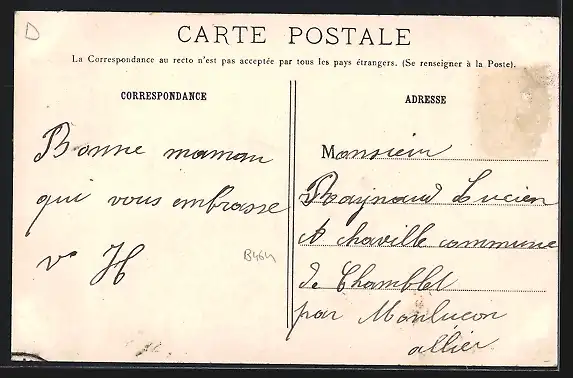 D
CARTE POSTALE
La Correspondance au recto n'est pas acceptée par tous les pays étrangers. (Se renseigner à la Poste).
CORRESPONDANCE
Bonne maman
qui vous embrasse
ve H
B464
ADRESSE
Monsieur
Raynaud Lucien
A chaville commune
de Chamblet
par Monluçon
allier